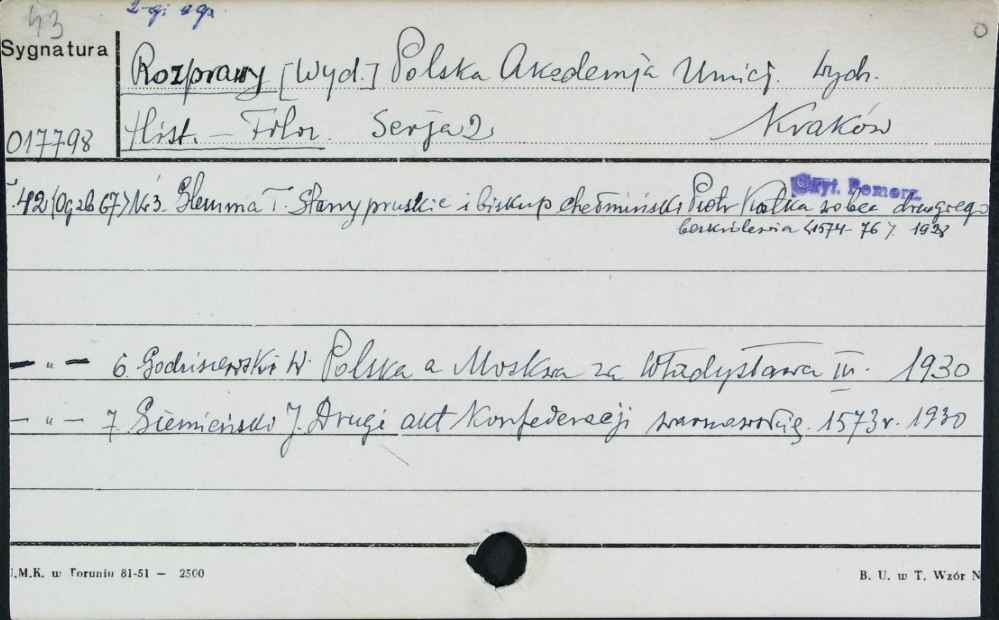 43 2-gi egz.
Sygnatura
Rozprawy [Wyd.] Polska Akademja Umiej. Wydz.
017798 Hist. – Filoz. Serja 2. Kraków
T. 42 (Og. zb 67) Nr 3. Glemma T. Stany pruskie i biskup chełmiński Piotr Kostka wobec drugiego
bezkrólewia (1574–76). 1928
Czyt. Pomorz.
– „ – 6. Godziszewski W. Polska a Moskwa za Władysława IV. 1930
– „ – 7. Siemieński J. Drugi akt Konfederacji warszawskiej. 1573 r. 1930
U.M.K. w Toruniu 81-51 — 2500
B. U. w T. Wzór N